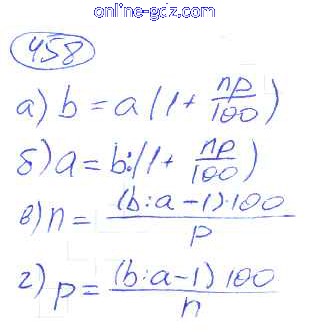 online-gdz.com
458
а) b = a(1 + np/100)
б) a = b:(1 + np/100)
в) n = (b:a - 1)·100/p
г) p = (b:a - 1) 100/n